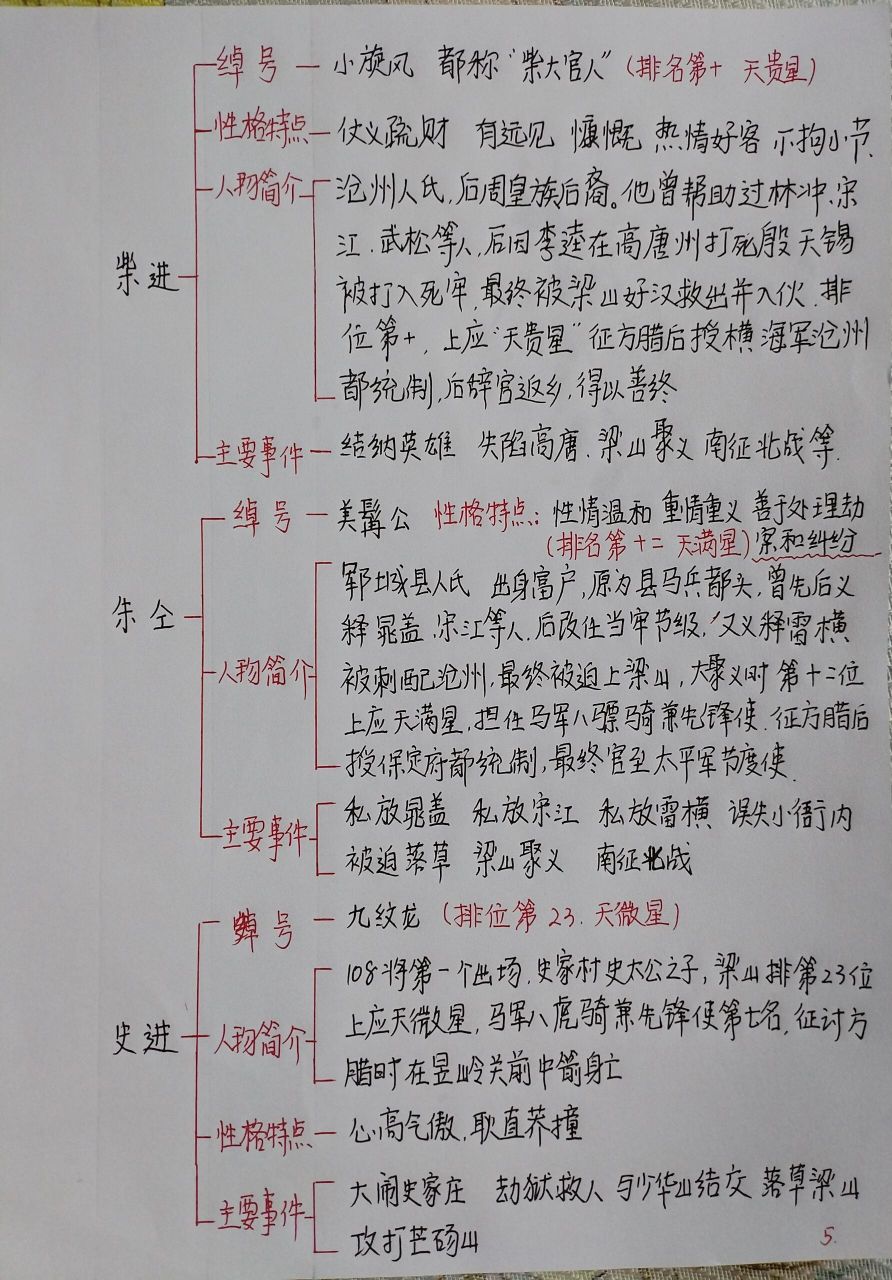 绰号 小旋风 都称“柴大官人”(排名第十 天贵星)
性格特点 仗义疏财 有远见 慷慨 热情好客 不拘小节.
人物简介 沧州人氏,后周皇族后裔。他曾帮助过林冲、宋
江、武松等人,后因李逵在高唐州打死殷天锡
柴进
被打入死牢,最终被梁山好汉救出并入伙.排
位第十,上应“天贵星”征方腊后授横海军沧州
都统制,后辞官返乡,得以善终
主要事件 结纳英雄 失陷高唐、梁山聚义 南征北战等.
绰号 美髯公 性格特点: 性情温和 重情重义 善于处理劫
(排名第十二 天满星) 案和纠纷
郓城县人氏 出身富户,原为县马兵都头,曾先后义
朱仝
释晁盖、宋江等人.后改任当牢节级,又义释雷横
人物简介 被刺配沧州,最终被迫上梁山,大聚义时第十二位
上应天满星,担任马军八骠骑兼先锋使.征方腊后
授保定府都统制,最终官至太平军节度使.
主要事件 私放晁盖 私放宋江 私放雷横 误失小衙内
被迫落草 梁山聚义 南征北战
绰号 九纹龙 (排位第23.天微星)
108将第一个出场,史家村史太公之子,梁山排第23位
史进 人物简介 上应天微星,马军八虎骑兼先锋使第七名,征讨方
腊时在昱岭关前中箭身亡
性格特点 心高气傲,耿直莽撞
主要事件 大闹史家庄 劫狱救人 与少华山结交 落草梁山
攻打芒砀山
5.